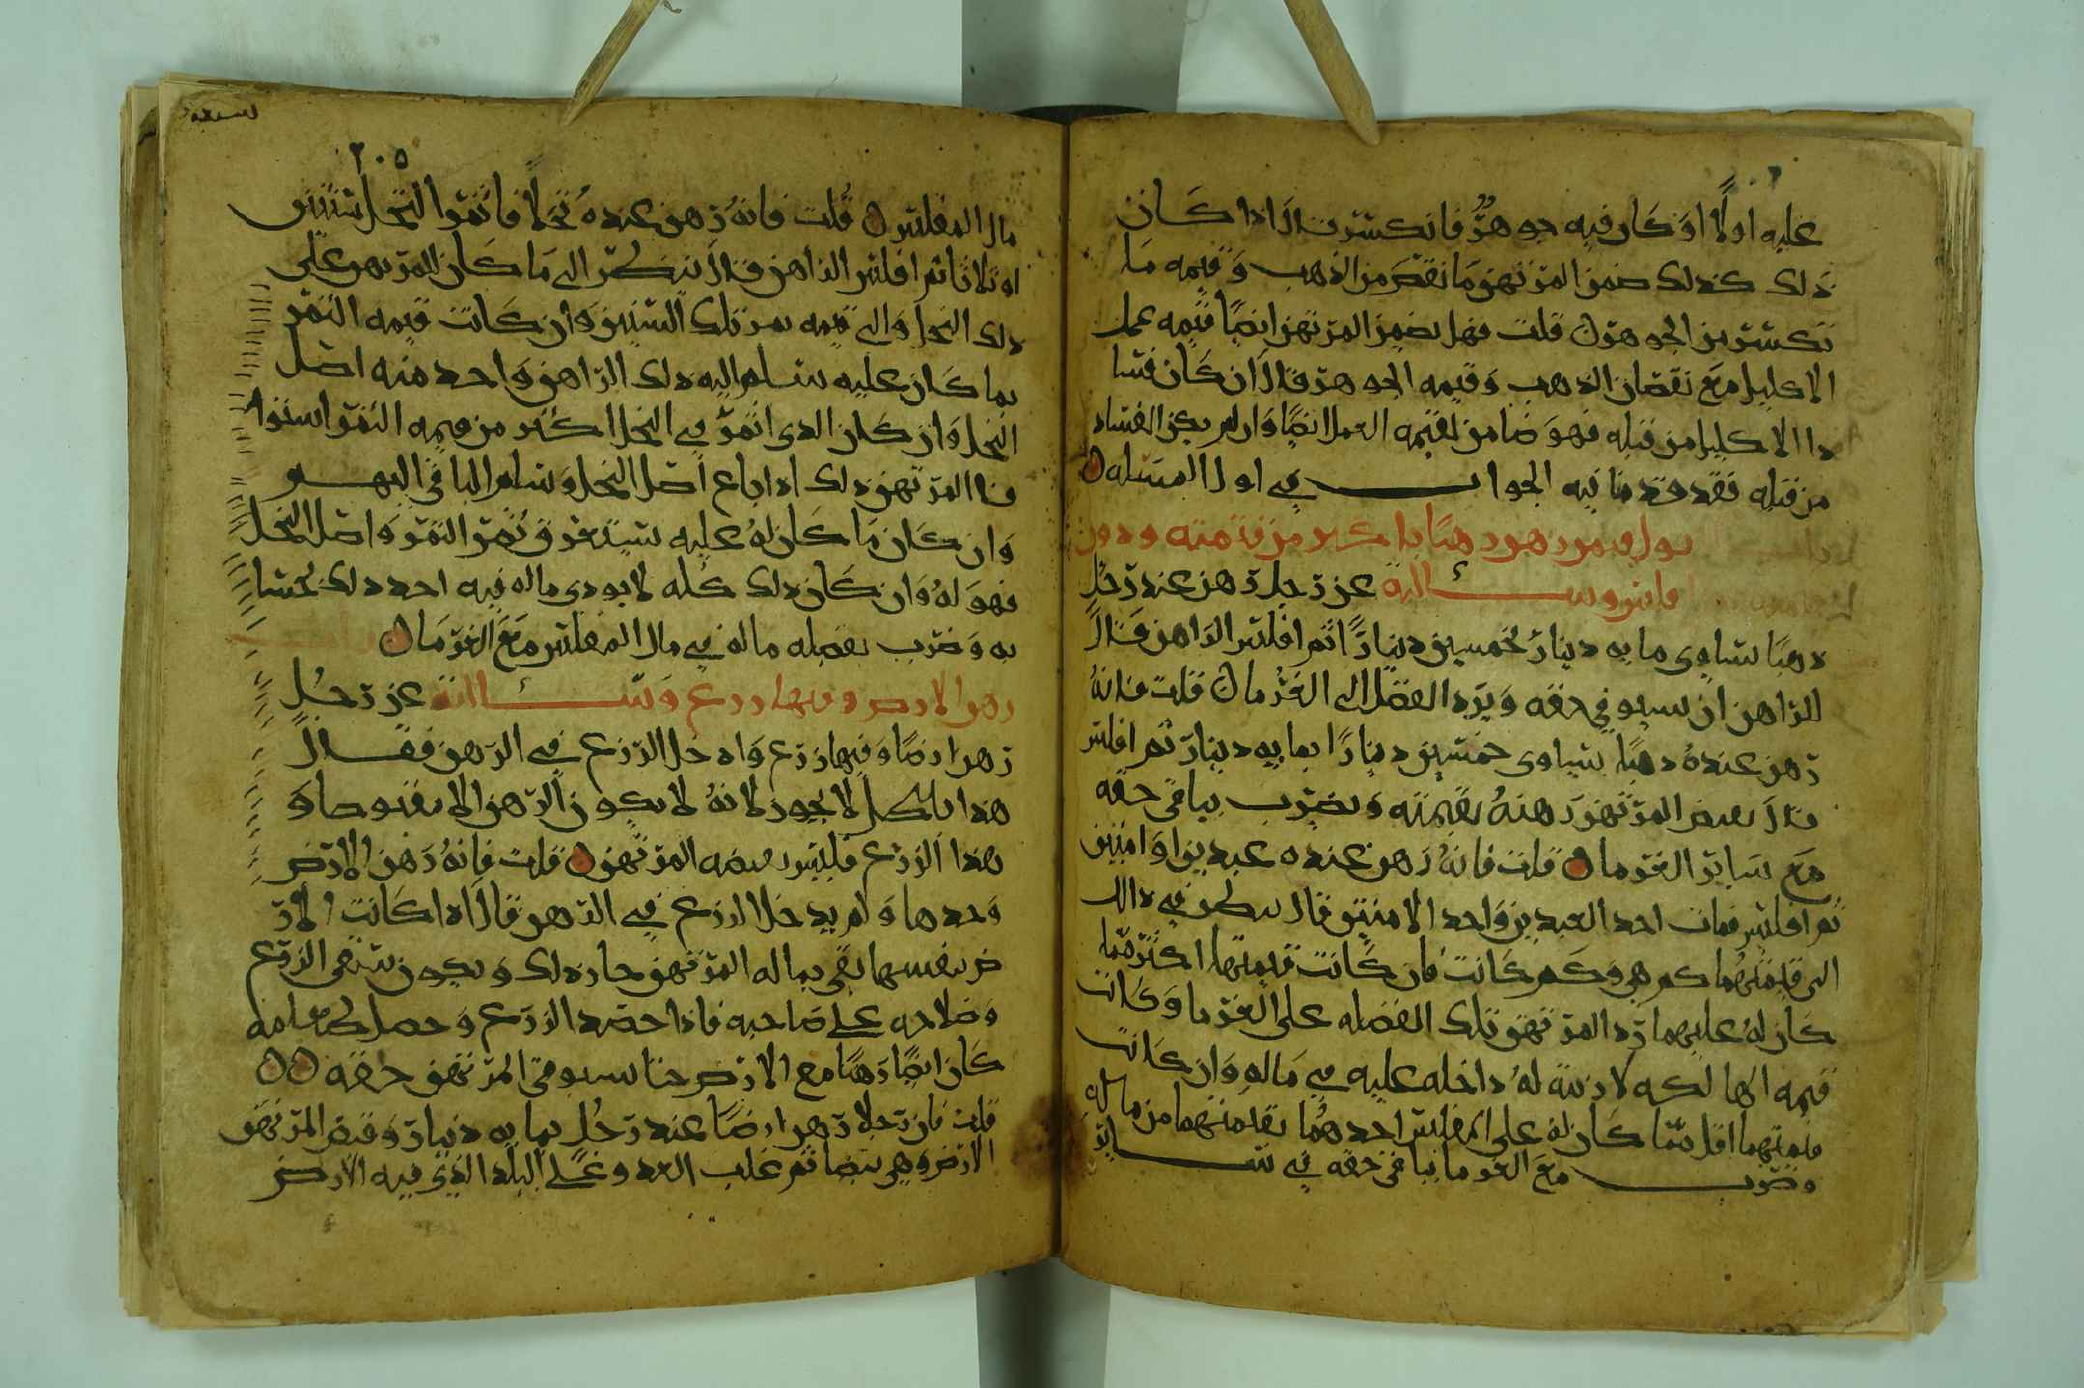 عليه اولًا اوَكَان فيه جوهرٌ فانكسر قالَ اذا كَان
ذَلك كذلك ضمن المرتهن مَا نقصَ من الذهب وَقيمه مَا
تكسر من الجوهر قلت فهل يضمن المرتهن ايضًا قيمه عمل
الاكليل مَع نقصان الذهب وَقيمه الجوهر قالَ ان كَان فسا
د الاكليل من قبله فهوَ ضامن لقيمه العمل ايضًا وَان لم يكن الفساد
من قبله فقد قدمنا فيه الجواب في اول المسئله
عن رجل رهن عند رجُل
رهنًا يساوى مايه دينار بخمسين دينارًا ثم افلس الراهن قالَ
الراهن ان يستوفي حقه وَيرد الفضل الى الغرما قلت فانهُ
رهن عندهُ رهنًا يساوى خمسين دينارًا بمايه دينار ثم افلس
قالَ يقبض المرتهن رَهنهُ بقيمته وَيضرب بباقى حقه
مَع سَاير الغرما قلت فانهُ رَهن عنده عبدين اوَامتين
ثم افلس فمات احد العبدين وَاحد الامتين قال ينظر في ذالك
الى قيمتهُما كم هي وَكَم كَانت فان كَانت قيمتها اكثر مما
كَان لهُ عليهما رَد المرتهن تلك الفضله على الغرما وَكَانت
قيمه الهالكه لازمه لهُ داخله عليه في مَاله وَان كَانت
قيمتهما اقل مما كَان له على المفلس احدهُما بقيمتهما من ماله
وضرب مَع الغرما بباقى حقه في ساير
٢٠٥
مال المفلس قُلت فانهُ رَهن عندهُ نخلًا فاثمر النخل سنتين
او ثلاثا ثم افلس الراهن قالَ ينظر الى مَا كَان للمرتهن على
ذلك النخل وَالى قيمه ثمر تلك السنين وَان كَانت قيمه الثمر
بما كَان عليه سلم اليه ذلك الراهن وَاخد منه اصل
النخل وَان كَان الدى اثمرَ في النخل اكثر من قيمه الثمر استوا
فا المرتهن ذلك اذا باع اصل النخل وَسلم الباقي اليهو
وَان كَان مَا كَان لهُ عليه يستغرق ثمر الثمر وَاصل النخل
فهوَ لهُ وَان كَان ذلك كُله لا يودى ماله فيه اخد ذلك بحسا
به وَضرب بفضله ماله في مال المفلس مَع الغرمَا
رهن الارض وفيها زرع وَسالته عن رَجُل
رَهن ارضًا وَفيها زرَع وَادخل الزرَع في الرَهن فقالَ
هذا باطل لا يجوز لانهُ لا يكون الرهن الا مقبوضا وَ
هذا الزرَع فليس يقبضه المرتهن قلت فانهُ رَهن الارض
وَحدها وَلم يدخل الزرع في الرهن قالَ اذا كَانت الار
ض بنفسها تفى بماله المرتهن جاز ذلك وَيكون سقى الزرع
وَصلاحه على صَاحبه فاذا حصد الزرَع وَحصل طعامه
كَان ايضًا رَهنًا مع الارض حتا يستوفى المرتهن حقه
قلت فان رَجلا رَهن ارضًا عند رَجُل بمايه دينار وَقبض المرتهن
الارض وَهى بيضا ثم غلب العدو على البلد الذى فيه الارض